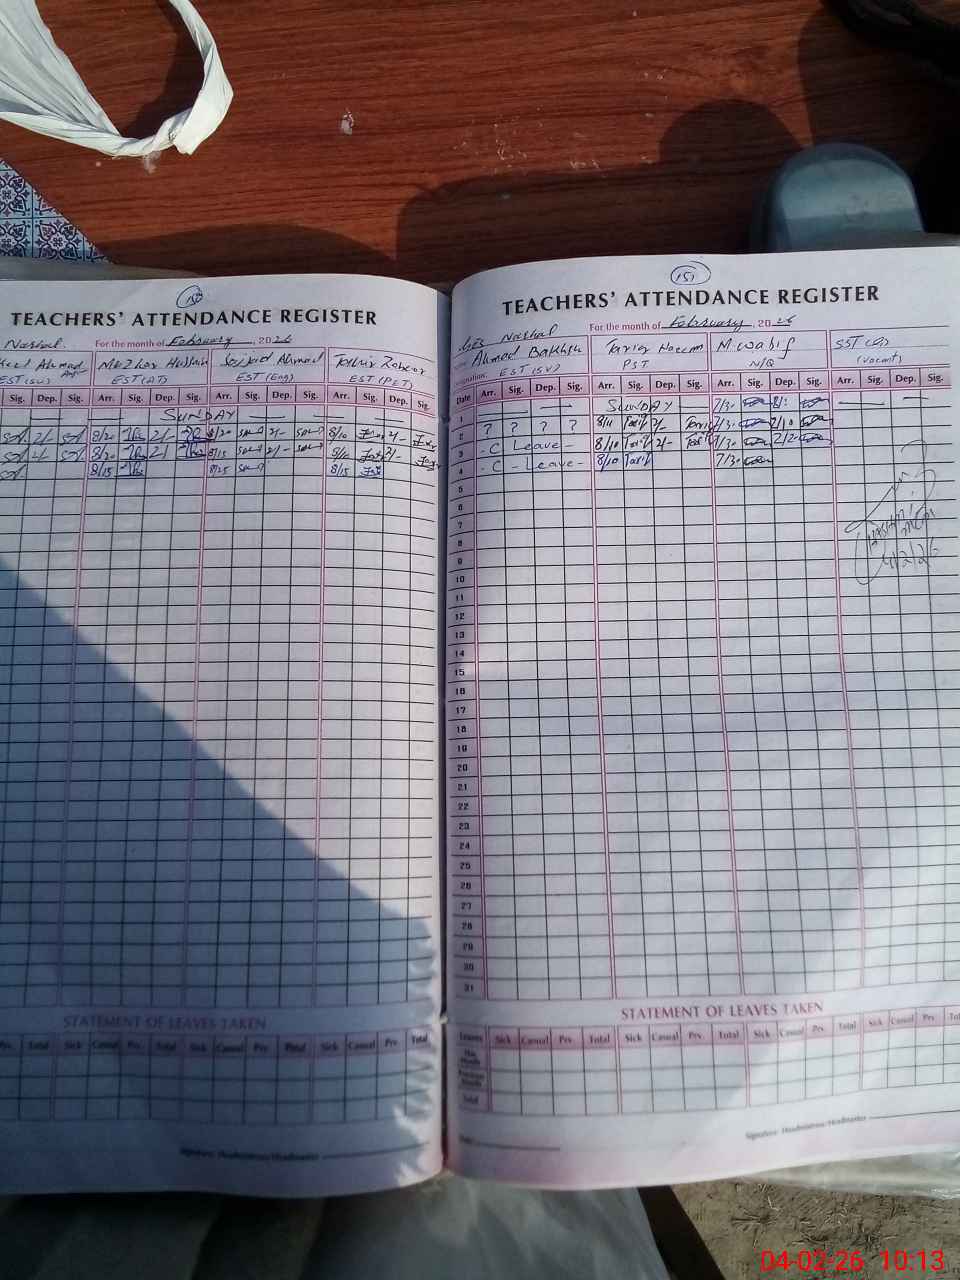 150
TEACHERS' ATTENDANCE REGISTER
Nashal. For the month of February, 2026
Ahmad Mazhar Hussain Sajjad Ahmad
EST (SV) EST (AT) EST (Eng) EST (PET)
Sig. Dep. Sig. Arr. Sig. Dep. Sig. Arr. Sig. Dep. Sig. Arr. Sig. Dep. Sig.
SUNDAY
2/- 8/20 2/- 8/20 2/- 8/10 2/-
2/- 8/20 2/- 8/15 2/- 8/10 2/-
8/15 8/25 8/15
STATEMENT OF LEAVES TAKEN
Prv. Total Sick Casual Prv. Total Sick Casual Prv. Total Sick Casual Prv. Total
Signature Headmistress/Headmaster
151
TEACHERS' ATTENDANCE REGISTER
GES Nashal For the month of February, 2026
Ahmed Bakhsh Tariq Naeem M. Wasif SST (G)
Designation: EST (SV) PST N/Q (Vacant)
Date Arr. Sig. Dep. Sig. Arr. Sig. Dep. Sig. Arr. Sig. Dep. Sig. Arr. Sig. Dep. Sig.
1 SUNDAY 7/30
2 ? ? ? ? 8/11 Tariq 2/- Tariq 7/30 2/10
3 - C Leave - 8/10 Tariq 2/- Tariq 7/30 2/20
4 - C - Leave - 8/10 Tariq 7/30
5
6
7
8
9
10
11
12
13
14
15
16
17
18
19
20
21
22
23
24
25
26
27
28
29
30
31
4/2/26
STATEMENT OF LEAVES TAKEN
Leaves Sick Casual Prv. Total Sick Casual Prv. Total Sick Casual Prv. Total Sick Casual Prv. Total
This Month
Previous Month
Total
Signature Headmistress/Headmaster
04-02-26 10:13